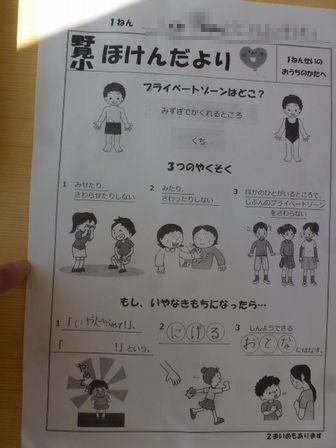 1ねん
野見小 ほけんだより
1ねんせいの
おうちのかたへ
プライベートゾーンはどこ？
みずぎでかくれるところ
くち
3つのやくそく
1 みせたり、
さわらせたりしない
2 みたり、
さわったりしない
3 ほかのひとがいるところで、
じぶんのプライベートゾーン
をさわらない
もし、いやなきもちになったら…
1 「いやだ！やめて！」、
「 ！」という。
2 にげる
3 しんようできる
おとな にはなす。
やめて
2まいめもあります